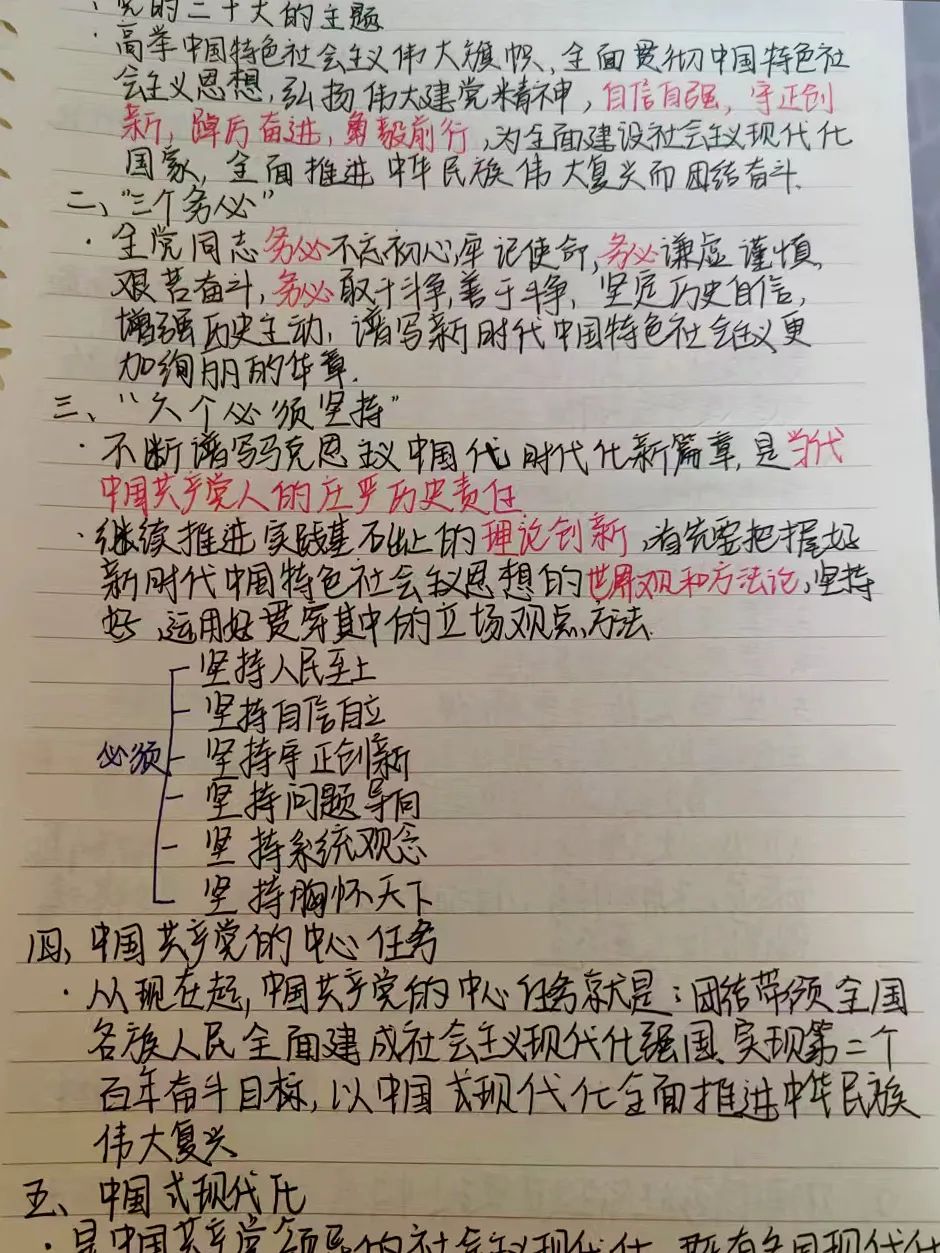 ·党的二十大的主题
·高举中国特色社会主义伟大旗帜,全面贯彻中国特色社
会主义思想,弘扬伟大建党精神,自信自强,守正创
新,踔厉奋进,勇毅前行,为全面建设社会主义现代化
国家,全面推进中华民族伟大复兴而团结奋斗.
二、“三个务必”
·全党同志务必不忘初心,牢记使命,务必谦虚谨慎,
艰苦奋斗,务必敢于斗争,善于斗争,坚定历史自信,
增强历史主动,谱写新时代中国特色社会主义更
加绚丽的华章.
三、“六个必须坚持”
·不断谱写马克思主义中国代时代化新篇章,是当代
中国共产党人的庄严历史责任
·继续推进实践基础上的理论创新,首先要把握好
新时代中国特色社会主义思想的世界观和方法论,坚持
好、运用好贯穿其中的立场观点方法.
坚持人民至上
坚持自信自立
必须 坚持守正创新
坚持问题导向
坚持系统观念
坚持胸怀天下
四、中国共产党的中心任务
·从现在起,中国共产党的中心任务就是:团结带领全国
各族人民全面建成社会主义现代化强国、实现第二个
百年奋斗目标,以中国式现代化全面推进中华民族
伟大复兴
五、中国式现代化
·是中国共产党领导的社会主义现代化,既有各国现代化